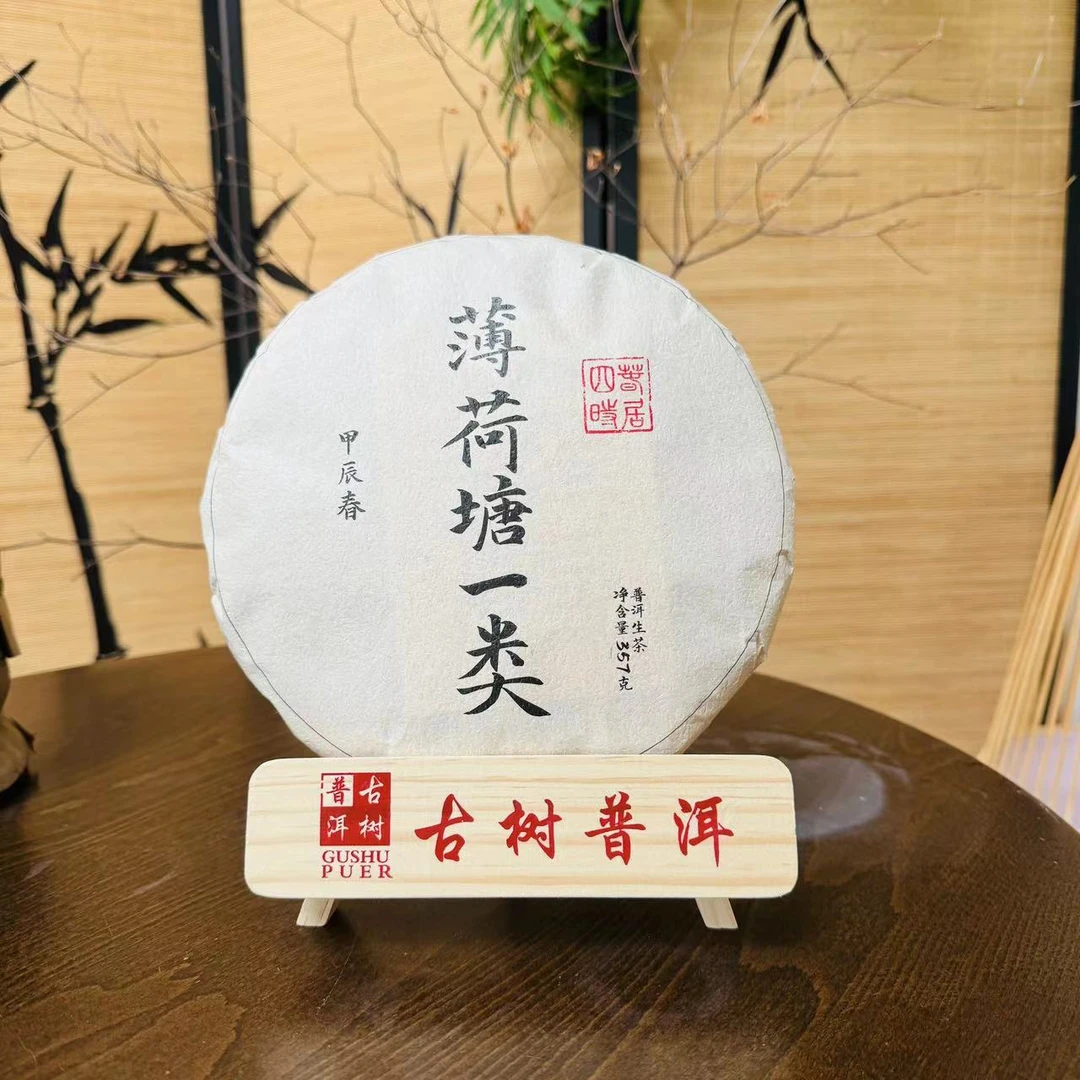 薄荷塘一类
甲辰春
春居
四时
普洱生茶
净含量357克
古树
普洱
GUSHU
PUER
古树普洱